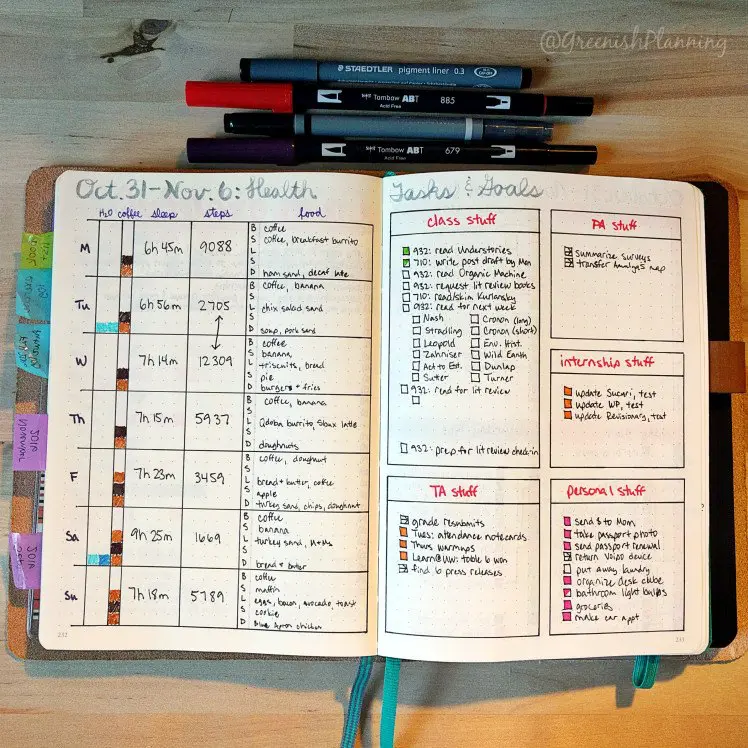 @GreenishPlanning
STAEDTLER pigment liner 0.3
Tombow ABT 885
Acid Free
Tombow ABT 679
Acid Free
Oct. 31-Nov. 6: Health
H2O coffee sleep steps food
M
6h 45m 9088
B coffee
S coffee, breakfast burrito
L
S
D ham sand, decaf latte
Tu
6h 56m 2705
B coffee, banana
S
L chix salad sand
S
D soup, pork sand
W
7h 14m 12309
B coffee
S banana
L triscuits, bread
S pie
D burgers + fries
Th
7h 15m 5937
B coffee, banana
S
L Qdoba burrito, Sbux latte
S
D doughnuts
F
7h 23m 3459
B coffee, doughnut
S
L bread + butter, coffee
S apple
D turkey sand, chips, doughnut
Sa
9h 25m 1669
B coffee
S banana
L turkey sand, M+Ms
S
D bread + butter
Su
7h 18m 5789
B coffee
S muffin
L eggs, bacon, avocado, toast
S cookie
D Blue Apron chicken
232
Tasks & Goals
class stuff
932: read Understories
710: write post draft by Mon
932: read Organic Machine
932: request lit review books
710: read/skim Kurlansky
932: read for next week
Nash Cronon (long)
Stradling Cronon (short)
Leopold Env. Hist.
Zahniser Wild Earth
Act to Est. Dunlap
Suter Turner
932: read for lit review
932: prep for lit review check-in
PA stuff
summarize surveys
transfer Analysis map
internship stuff
update Sucuri, test
update WP, test
update Revisionary, test
TA stuff
grade resubmits
Tues: attendance notecards
Thurs warmups
Learn@UW: table 6 won
find 6 press releases
personal stuff
send $ to Mom
take passport photo
send passport renewal
return Voipo device
put away laundry
organize desk cube
bathroom light bulbs
groceries
make car appt
233